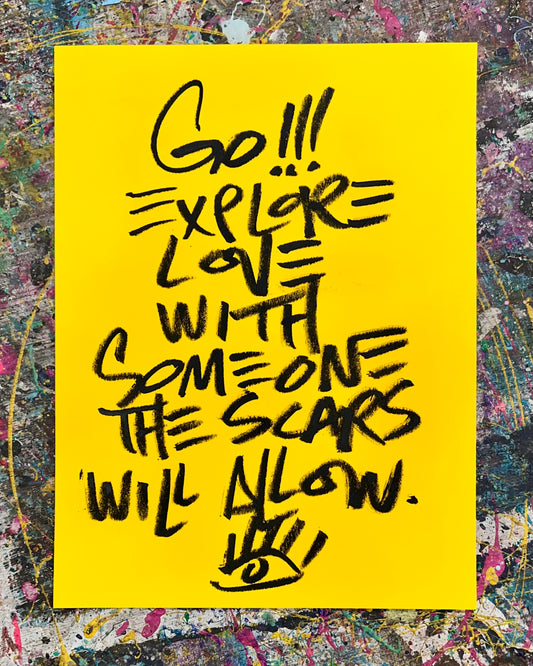 GO!!!
EXPLORE
LOVE
WITH
SOMEONE
THE SCARS
WILL ALLOW.